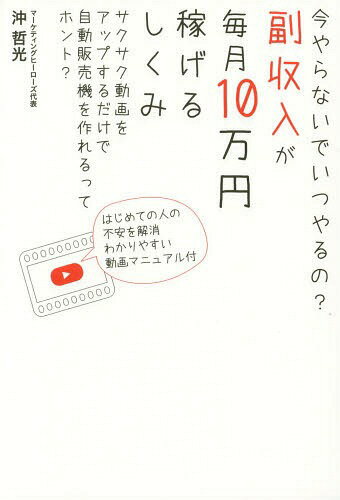 今やらないでいつやるの?
副収入が
毎月10万円
稼げる
しくみ
サクサク動画を
アップするだけで
自動販売機を作れるって
ホント?
マーケティングヒーローズ代表
沖 哲光
はじめての人の
不安を解消
わかりやすい
動画マニュアル付